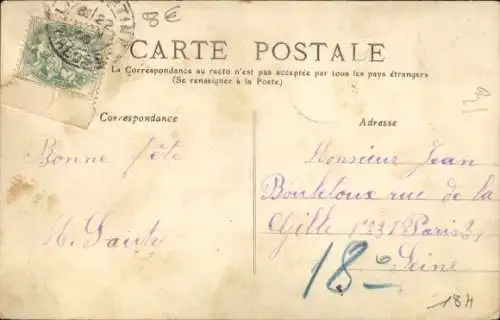 8€
CARTE POSTALE
La Correspondance au recto n'est pas acceptée par tous les pays étrangers
(Se renseigner à la Poste)
Correspondance
Adresse
Bonne fête
Monsieur Jean
rue de la
N°31 Paris
Seine
18
18H